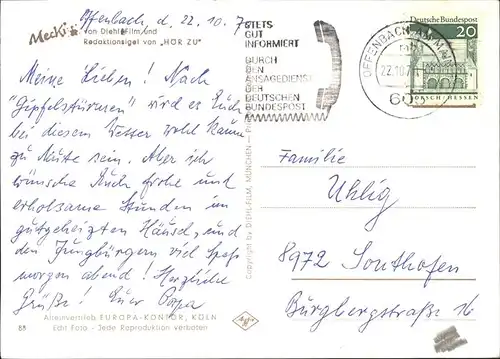 Offenbach, d. 22. 10. 7
Mecki
von Diehl-Film und
Redaktionsigel von „HÖR ZU"
Meine Lieben! Nach
"Gipfelstürmen" wird es Euch
bei diesem Wetter wohl kaum
zu Mute sein. Aber ich
wünsche Euch frohe und
erholsame Stunden im
gutgeheizten Häusel, und
den Jungbürgern viel Spass
morgen abend! Herzliche
Grüße! Euer Opa
Alleinvertrieb EUROPA-KONTOR, KÖLN
88 Edit Foto - Jede Reproduktion verboten
Copyright by DIEHL-FILM, MÜNCHEN
STETS
GUT
INFORMIERT
DURCH
DEN
ANSAGEDIENST
DER
DEUTSCHEN
BUNDESPOST
OFFENBACH AM MAIN
22.10.71
605
Deutsche Bundespost
20
LORSCH/HESSEN
Familie
Uhlig
8972 Sonthofen
Burgbergstraße 16